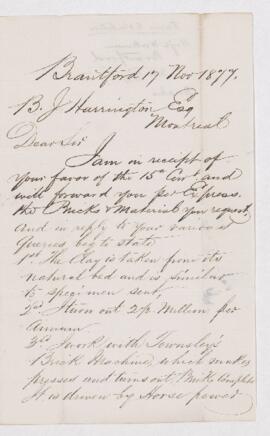 Brantford 17 Nov 1877.
B. J Harrington Esq
Montreal
Dear Sir
I am in receipt of
your favor of the 15th Inst and
will forward you per Express.
the Bricks & Material you request,
and in reply to your various
Queries, beg to state
1st The Clay is taken from its
natural bed and is similar
to specimen sent,
2nd I turn out 2½ Million per
Annum
3rd I work with Townsley's
Brick Machine, which makes
pressed and turns out Brick Complete
It is driven by Horse power